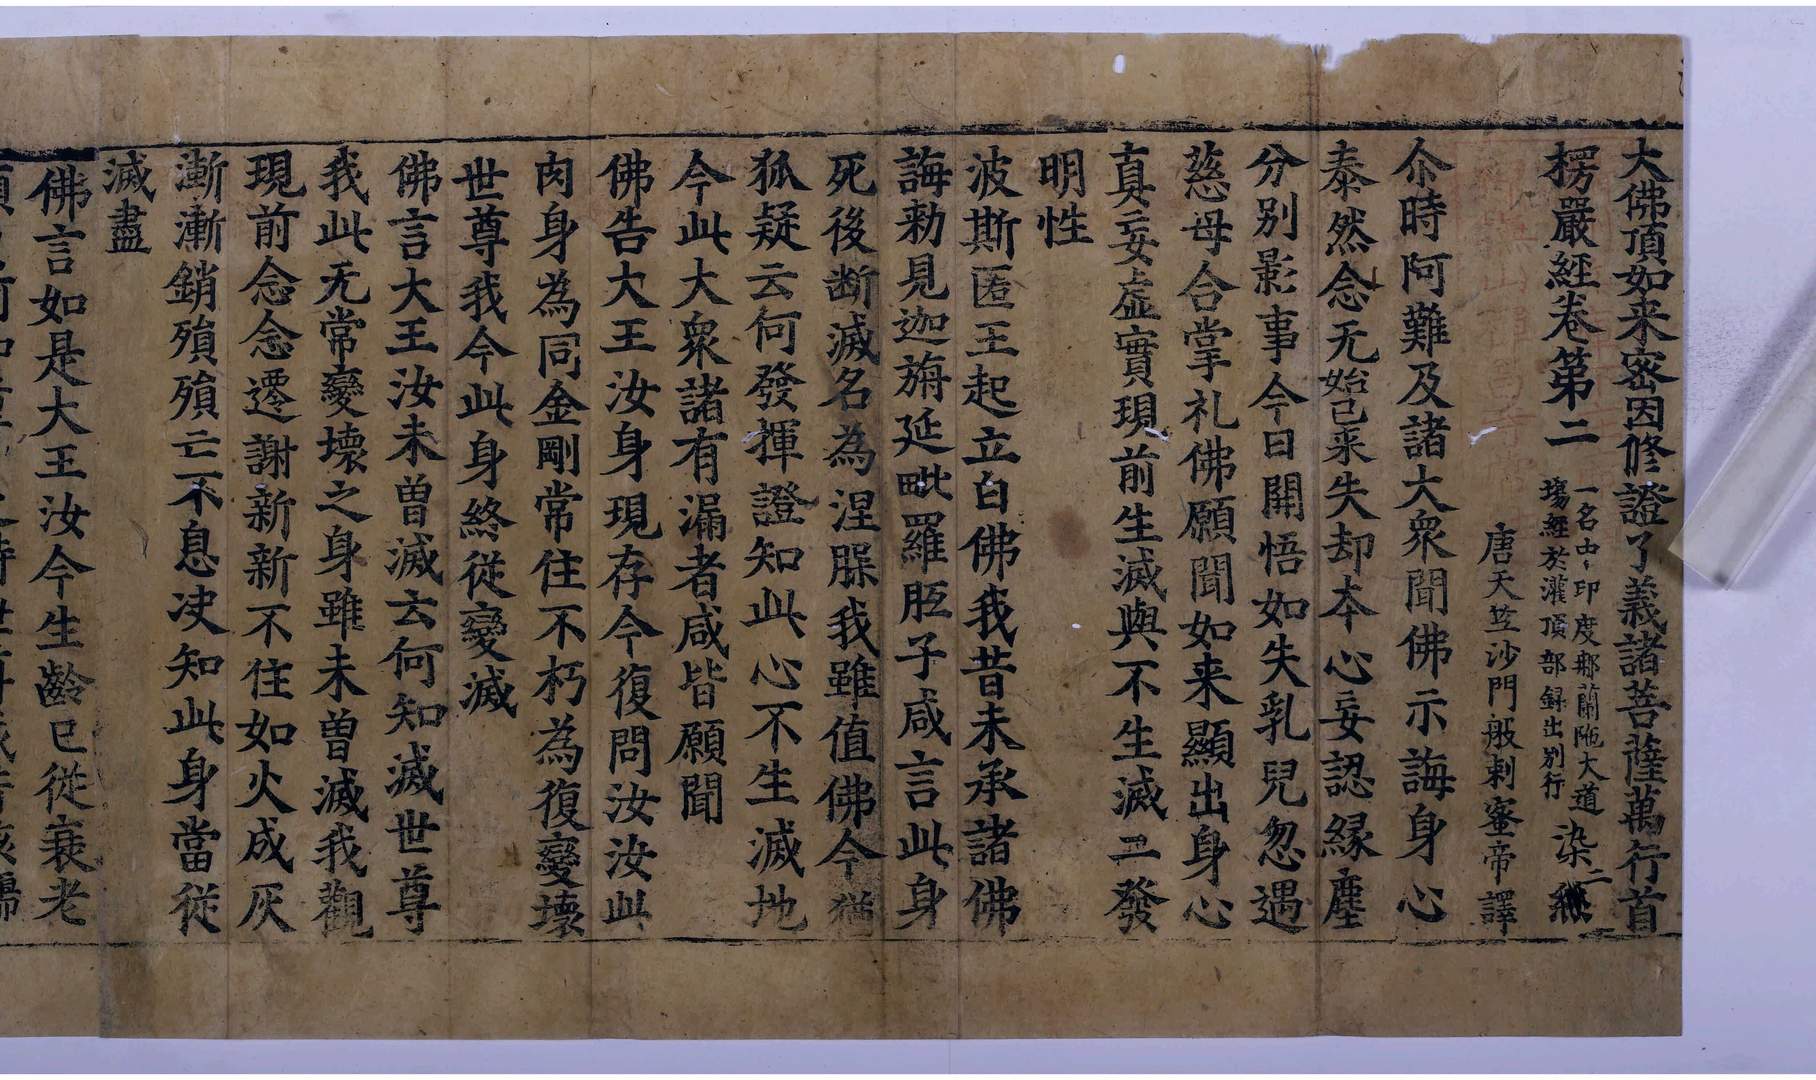 大佛頂如来密因修證了義諸菩薩萬行首
楞嚴經卷第二
一名中印度那蘭陁大道
塲經於灌頂部録出别行
染二
唐天竺沙門般剌蜜帝譯
尒時阿難及諸大衆聞佛示誨身心
泰然念无始已来失却本心妄認緣塵
分别影事今日開悟如失乳兒忽遇
慈母合掌礼佛願聞如来顯出身心
真妄虚實現前生滅與不生滅二發
明性
波斯匿王起立白佛我昔未承諸佛
誨勑見迦旃延毗羅胝子咸言此身
死後断滅名為涅槃我雖值佛今猶
狐疑云何發揮證知此心不生滅地
今此大衆諸有漏者咸皆願聞
佛告大王汝身現存今復問汝汝此
肉身為同金剛常住不朽為復變壞
世尊我今此身終從變滅
佛言大王汝未曾滅云何知滅世尊
我此无常變壞之身雖未曾滅我觀
現前念念遷謝新新不住如火成灰
漸漸銷殞殞亡不息决知此身當從
滅盡
佛言如是大王汝今生齡已從衰老